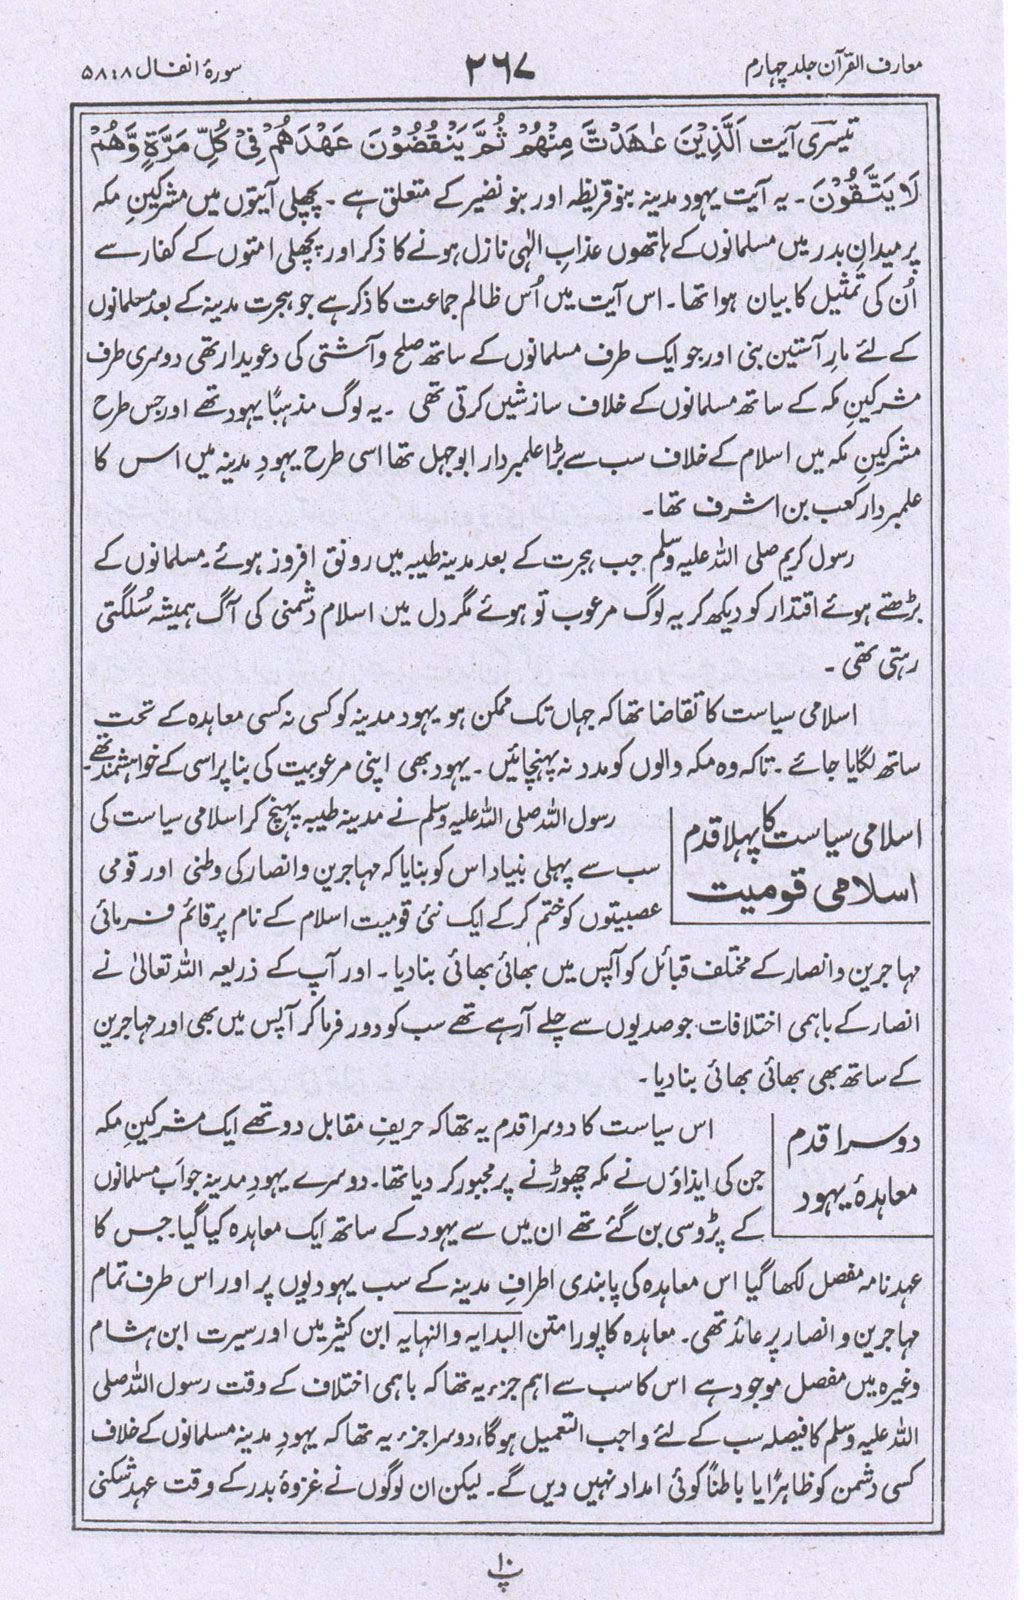 معارف القرآن جلد چہارم
۲۶۷
سورۂ انفال ۸ : ۵۸
تیسری آیت اَلَّذِیْنَ عٰهَدْتَّ مِنْهُمْ ثُمَّ یَنْقُضُوْنَ عَهْدَهُمْ فِیْ كُلِّ مَرَّةٍ وَّهُمْ
لَا یَتَّقُوْنَ ۔ یہ آیت یہود مدینہ بنو قریظہ اور بنو نضیر کے متعلق ہے ۔ پچھلی آیتوں میں مشرکینِ مکہ
پر میدان بدر میں مسلمانوں کے ہاتھوں عذابِ الٰہی نازل ہونے کا ذکر اور پچھلی امتوں کے کفار سے
اُن کی تمثیل کا بیان ہوا تھا ۔ اس آیت میں اُس ظالم جماعت کا ذکر ہے جو ہجرت مدینہ کے بعد مسلمانوں
کے لئے مارِ آستین بنی اور جو ایک طرف مسلمانوں کے ساتھ صلح و آشتی کی دعویدار تھی دوسری طرف
مشرکینِ مکہ کے ساتھ مسلمانوں کے خلاف سازشیں کرتی تھی ۔ یہ لوگ مذہباً یہود تھے اور جس طرح
مشرکینِ مکہ میں اسلام کے خلاف سب سے بڑا علمبردار ابوجہل تھا اسی طرح یہودِ مدینہ میں اس کا
علمبردار کعب بن اشرف تھا ۔
رسول کریم صلی اللہ علیہ وسلم جب ہجرت کے بعد مدینہ طیبہ میں رونق افروز ہوئے ۔ مسلمانوں کے
بڑھتے ہوئے اقتدار کو دیکھ کر یہ لوگ مرعوب تو ہوئے مگر دل میں اسلام دشمنی کی آگ ہمیشہ سُلگتی
رہتی تھی ۔
اسلامی سیاست کا تقاضا تھا کہ جہاں تک ممکن ہو یہود مدینہ کو کسی نہ کسی معاہدہ کے تحت
ساتھ لگایا جائے ۔ تاکہ وہ مکہ والوں کو مدد نہ پہنچائیں ۔ یہود بھی اپنی مرعوبیت کی بنا پر اسی کے خواہشمند تھے ۔
اسلامی سیاست کا پہلا قدم
اسلامی قومیت
رسول اللہ صلی اللہ علیہ وسلم نے مدینہ طیبہ پہنچ کر اسلامی سیاست کی
سب سے پہلی بنیاد اس کو بنایا کہ مہاجرین و انصار کی وطنی اور قومی
عصبیتوں کو ختم کر کے ایک نئی قومیت اسلام کے نام پر قائم فرمائی
مہاجرین و انصار کے مختلف قبائل کو آپس میں بھائی بھائی بنا دیا ۔ اور آپ کے ذریعہ اللہ تعالیٰ نے
انصار کے باہمی اختلافات جو صدیوں سے چلے آرہے تھے سب کو دور فرما کر آپس میں بھی اور مہاجرین
کے ساتھ بھی بھائی بھائی بنا دیا ۔
دوسرا قدم
معاہدۂ یہود
اس سیاست کا دوسرا قدم یہ تھا کہ حریفِ مقابل دو تھے ایک مشرکینِ مکہ
جن کی ایذاؤں نے مکہ چھوڑنے پر مجبور کر دیا تھا ۔ دوسرے یہودِ مدینہ جو اَب مسلمانوں
کے پڑوسی بن گئے تھے ان میں سے یہود کے ساتھ ایک معاہدہ کیا گیا ۔ جس کا
عہد نامہ مفصل لکھا گیا اس معاہدہ کی پابندی اطرافِ مدینہ کے سب یہودیوں پر اور اس طرف تمام
مہاجرین و انصار پر عائد تھی ۔ معاہدہ کا پورا متن البدایہ والنہایہ ابن کثیر میں اور سیرت ابن ہشام
وغیرہ میں مفصل موجود ہے اس کا سب سے اہم جزء یہ تھا کہ باہمی اختلاف کے وقت رسول اللہ صلی
اللہ علیہ وسلم کا فیصلہ سب کے لئے واجب التعمیل ہوگا، دوسرا جزء یہ تھا کہ یہودِ مدینہ مسلمانوں کے خلاف
کسی دشمن کو ظاہراً یا باطناً کوئی امداد نہیں دیں گے ۔ لیکن ان لوگوں نے غزوۂ بدر کے وقت عہد شکنی